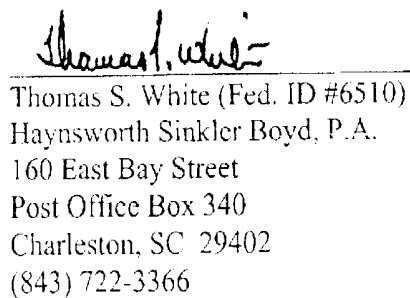 Thomas S. White
Thomas S. White (Fed. ID #6510)
Haynsworth Sinkler Boyd, P.A.
160 East Bay Street
Post Office Box 340
Charleston, SC 29402
(843) 722-3366